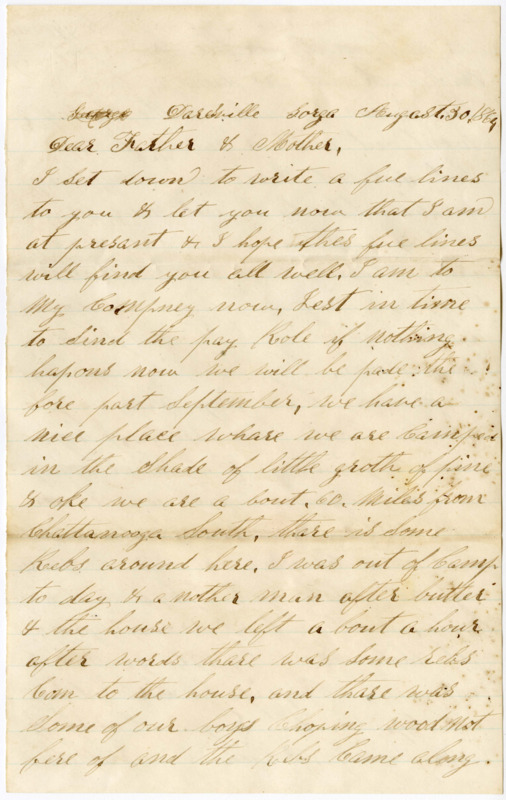 Dardville Gorga August, 30, 1864
Dear Father & Mother,
I set down to write a fue lines
to you & let you now that I am
at presant & I hope thes fue lines
will find you all well. I am to
My Compney now, Jest in time
to Sind the pay Role if nothing
hapons now we will be pade the
fore part September, we have a
nice place whare we are Camped
in the Shade of little groth of pine
& oke we are a bout, 60, Miles from
Chattanooga South, thare is Some
Rebs around here, I was out of Camp
to day & a nother man after butter
& the house we left a bout a hour
after words thare was Some Rebs
Com to the house, and thare was
Some of our boys Choping wood not
fere of and the Rebs Came along.